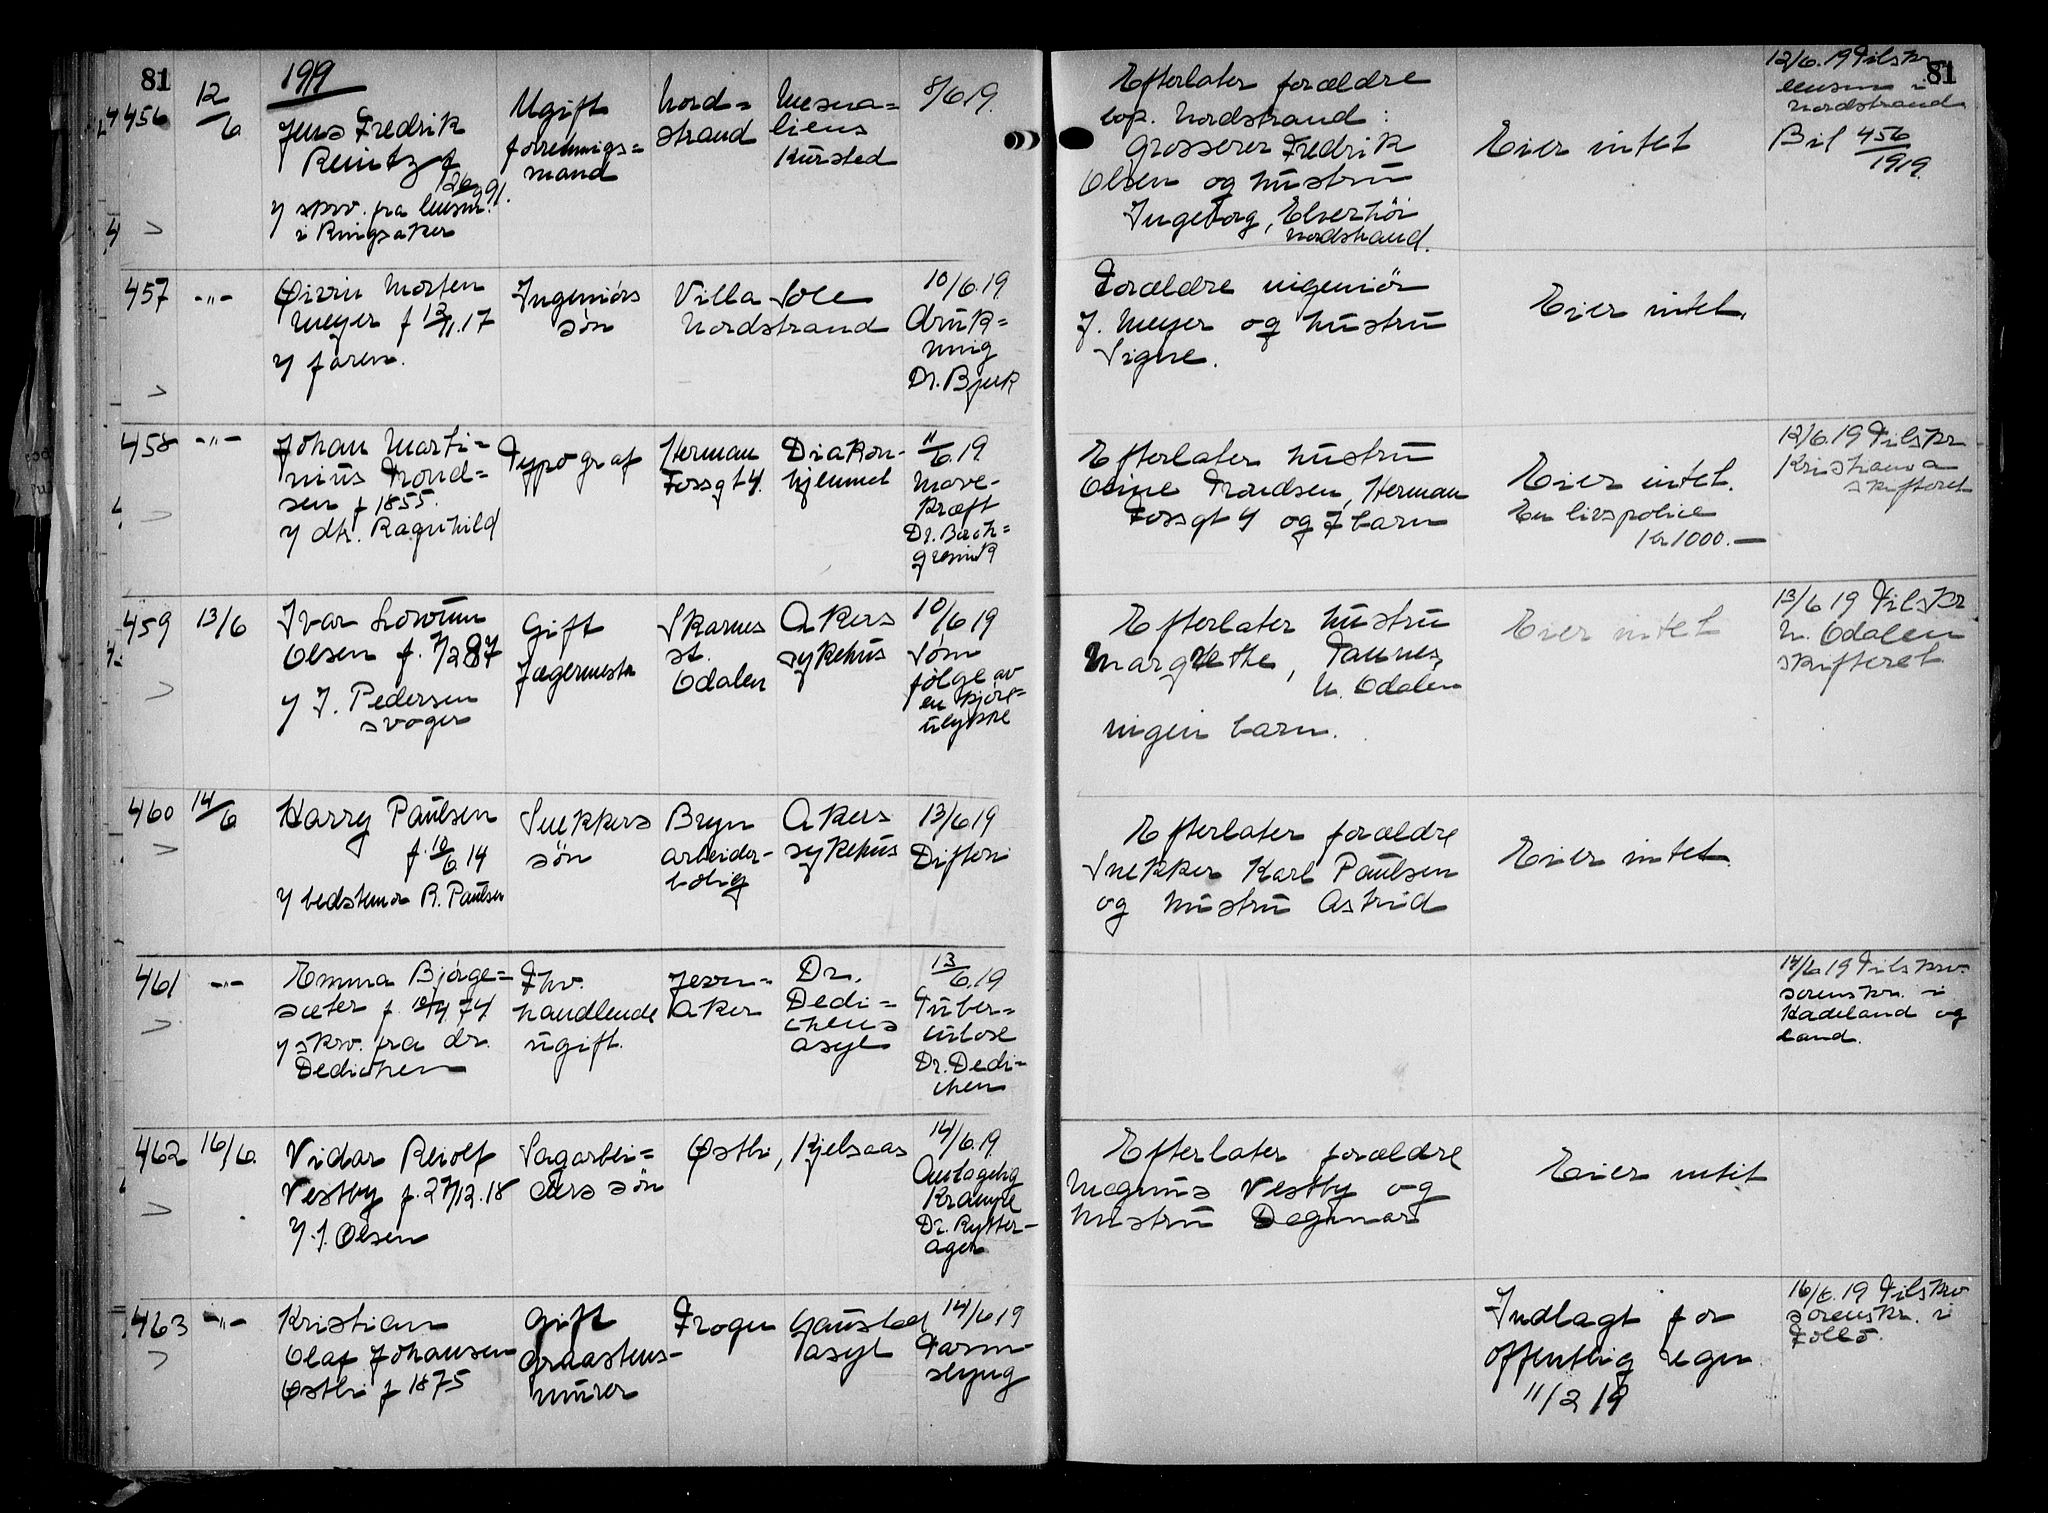 81
1919
456
12/6
Jens Fredrik
Reintz f
12/6 91.
y skrv. fra lensm.
i Ringsaker
Ugift
forretnings=
mand
Nord=
strand
Mesna=
liens
Kursted
8/6 19.
Efterlater forældre
bop. Nordstrand:
Grosserer Fredrik
Olsen og hustru
Ingeborg, Elverhöi
Nordstrand.
Eier intet
81
12/6.19 Tilskr
lensm i
Nordstrand
Bil 456
1919.
457
-"-
Øivin Morten
Meyer f 13/11.17
y faren.
Ingeniørs
søn
Villa Sole
Nordstrand
10/6.19
Druk=
ning
Dr. Bjerk
Forældre ingeniör
J. Meyer og hustru
Signe.
Eier intet.
458
-"-
Johan Marti=
nius Trond=
sen f 1855.
y dtr. Ragnhild
Typograf
Herman
Fossgt 4.
Diakon-
hjemmet
11/6.19
Mave-
kræft
Dr. Bach=
Efterlater hustru
Oline Trondsen, Herman
Fossgt 4 og 7 barn
Eier intet.
En livspolice
kr 1000.—
12/6.19 Tilskr
Kristiania
skifteret
459
13/6
Ivar Lovum
Olsen f. 7/2 87
y J. Pedersen
svoger
Gift
Jægermester
Skarnes
st.
Odalen
Akers
sykehus
10/6 19
Som
følge av
en kjøre-
ulykke
Efterlater hustru
Margrethe,
N. Odalen
ingen barn.
Eier intet
13/6 19 Tilskr
N. Odalen
skifteret
460
14/6
Harry Paulsen
f. 10/6 14
y bedstemor R. Paulsen
Snekkers
søn
Bryn
arbeider-
bolig
Akers
sykehus
13/6 19
Difteri
Efterlater forældre
Snekker Karl Paulsen
og hustru Astrid
Eier intet.
461
-"-
Emma Bjørge=
sæter f. 12/4 74
y skrv. fra dr.
Dedichen
Fhv.
handlende
ugift.
Jevn=
aker
Dr.
Dedi=
chens
asyl
13/6.19
Tuber=
kulose
Dr. Dedi=
chen
14/6 19 Tilskrv.
sorenskr. i
Hadeland og
Land.
462
16/6.
Vidar Reiolf
Vestby f. 27/12.18
y J. Olsen
Sagarbei=
ders søn
Østbi, Kjelsaas
14/6.19
Antagelig
Krampe
Dr. Rytter-
ager
Efterlater forældre
Magnus Vestby og
hustru Dagmar
Eier intet
463
-"-
Kristian
Olaf Johansen
Østbi f 1875
Gift
Graastens-
murer
Frogn
Gaustad
asyl
14/6 19
Tarm-
slyng
Indlagt for
offentlig regn
11/2 19
16/6.19 Tilskrv
sorenskr. i
Follo.